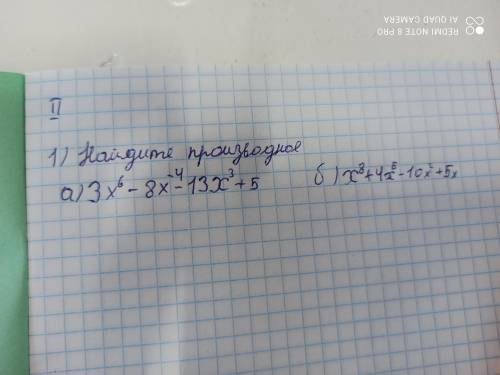 REDMI NOTE 8 PRO
AI QUAD CAMERA
II
1) Найдите производное
а) 3x⁶ - 8x⁻⁴ - 13x³ + 5 б) x⁸ + 4x⁵ - 10x² + 5x